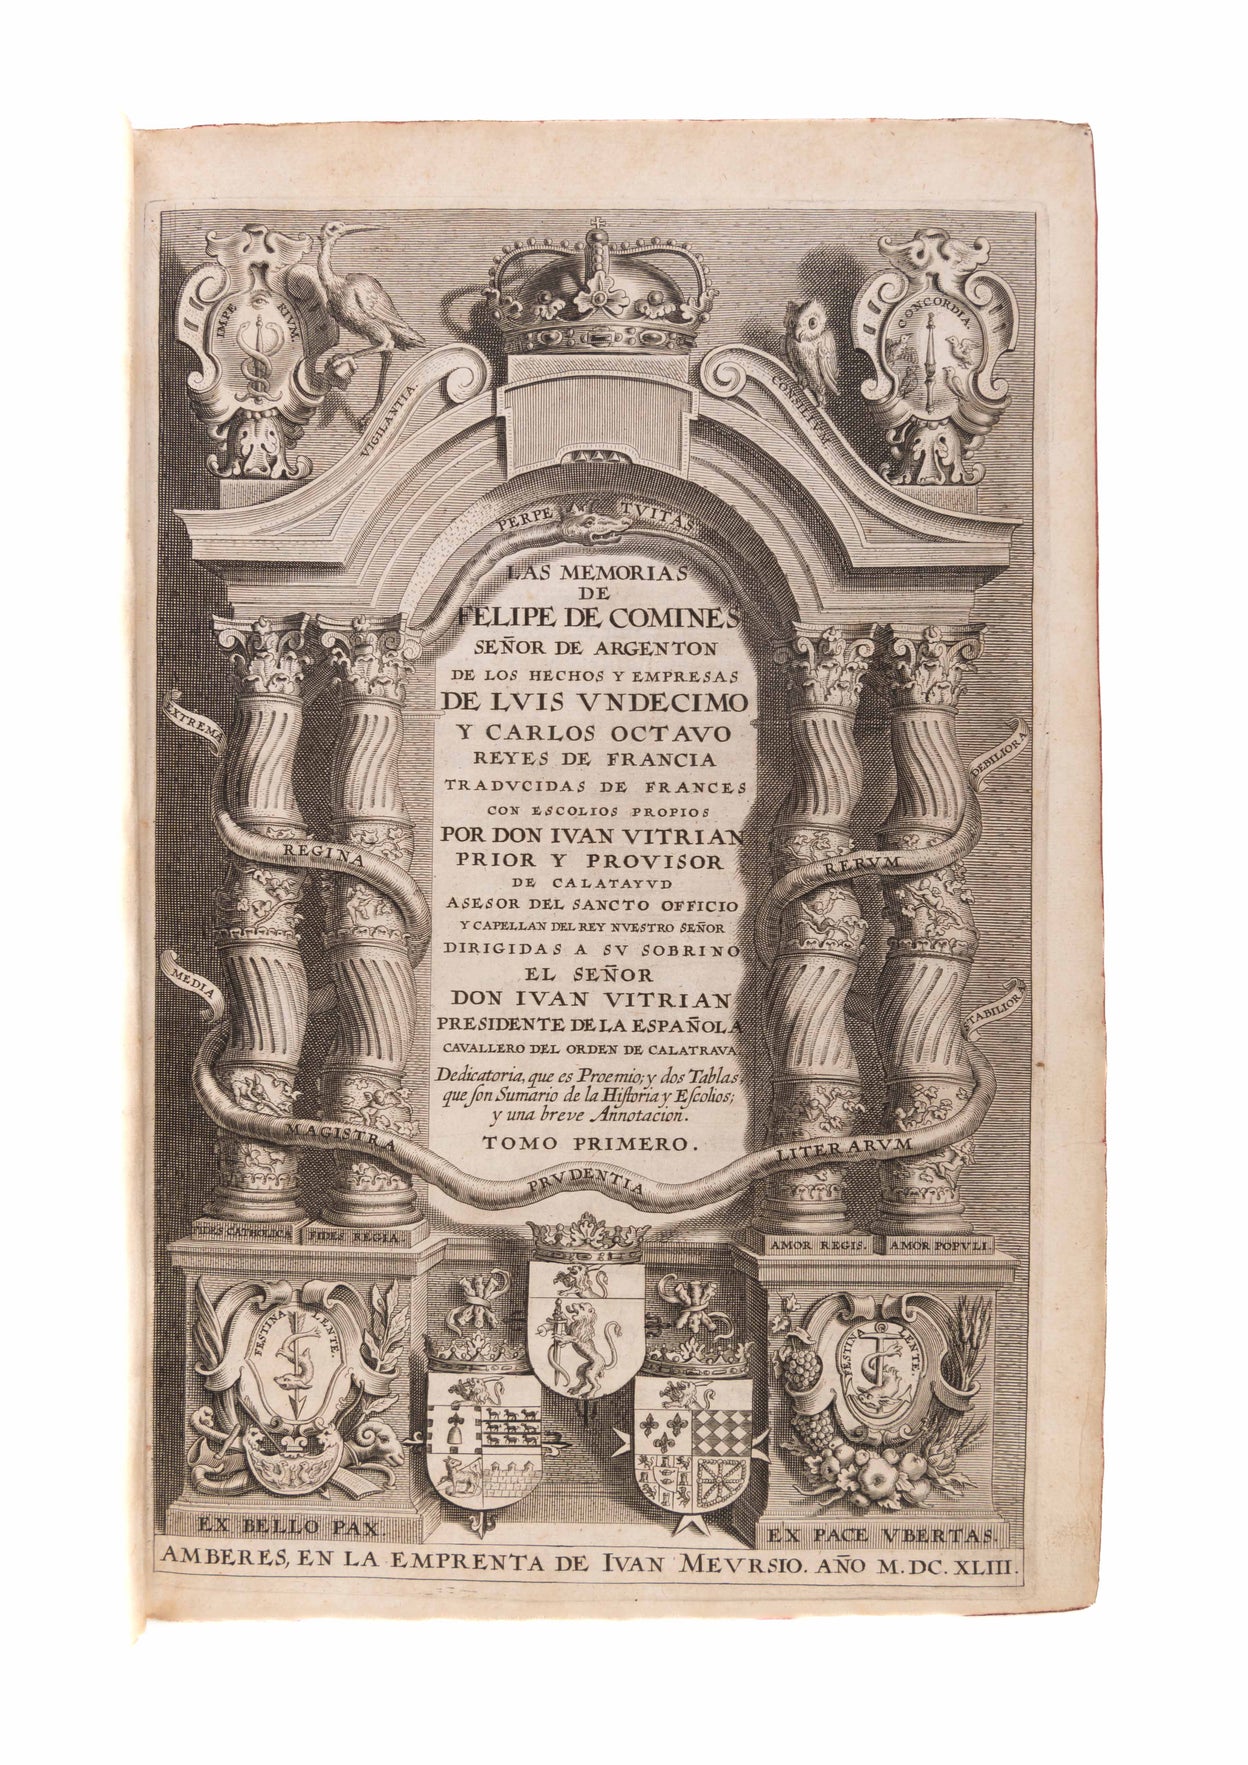 IMPERIUM
CONCORDIA.
VIGILANTIA.
CONSILIVM
PERPETVITAS
LAS MEMORIAS
DE
FELIPE DE COMINES
SEÑOR DE ARGENTON
DE LOS HECHOS Y EMPRESAS
DE LVIS VNDECIMO
Y CARLOS OCTAVO
REYES DE FRANCIA
TRADVCIDAS DE FRANCES
CON ESCOLIOS PROPIOS
POR DON IVAN VITRIAN
PRIOR Y PROVISOR
DE CALATAYVD
ASESOR DEL SANCTO OFFICIO
Y CAPELLAN DEL REY NVESTRO SEÑOR
DIRIGIDAS A SV SOBRINO
EL SEÑOR
DON IVAN VITRIAN
PRESIDENTE DE LA ESPAÑOLA
CAVALLERO DEL ORDEN DE CALATRAVA
Dedicatoria, que es Proemio; y dos Tablas,
que ſon Sumario de la Hiſtoria y Eſcolios;
y una breve Annotacion.
TOMO PRIMERO.
EXTREMA
DEBILIORA
REGINA
RERVM
MEDIA
STABILIORA
MAGISTRA
LITERARVM
PRVDENTIA
FIDES CATHOLICA
FIDES REGIA.
AMOR REGIS.
AMOR POPVLI.
FESTINA LENTE.
FESTINA LENTE.
EX BELLO PAX.
EX PACE VBERTAS.
AMBERES, EN LA EMPRENTA DE IVAN MEVRSIO. AÑO M.DC.XLIII.